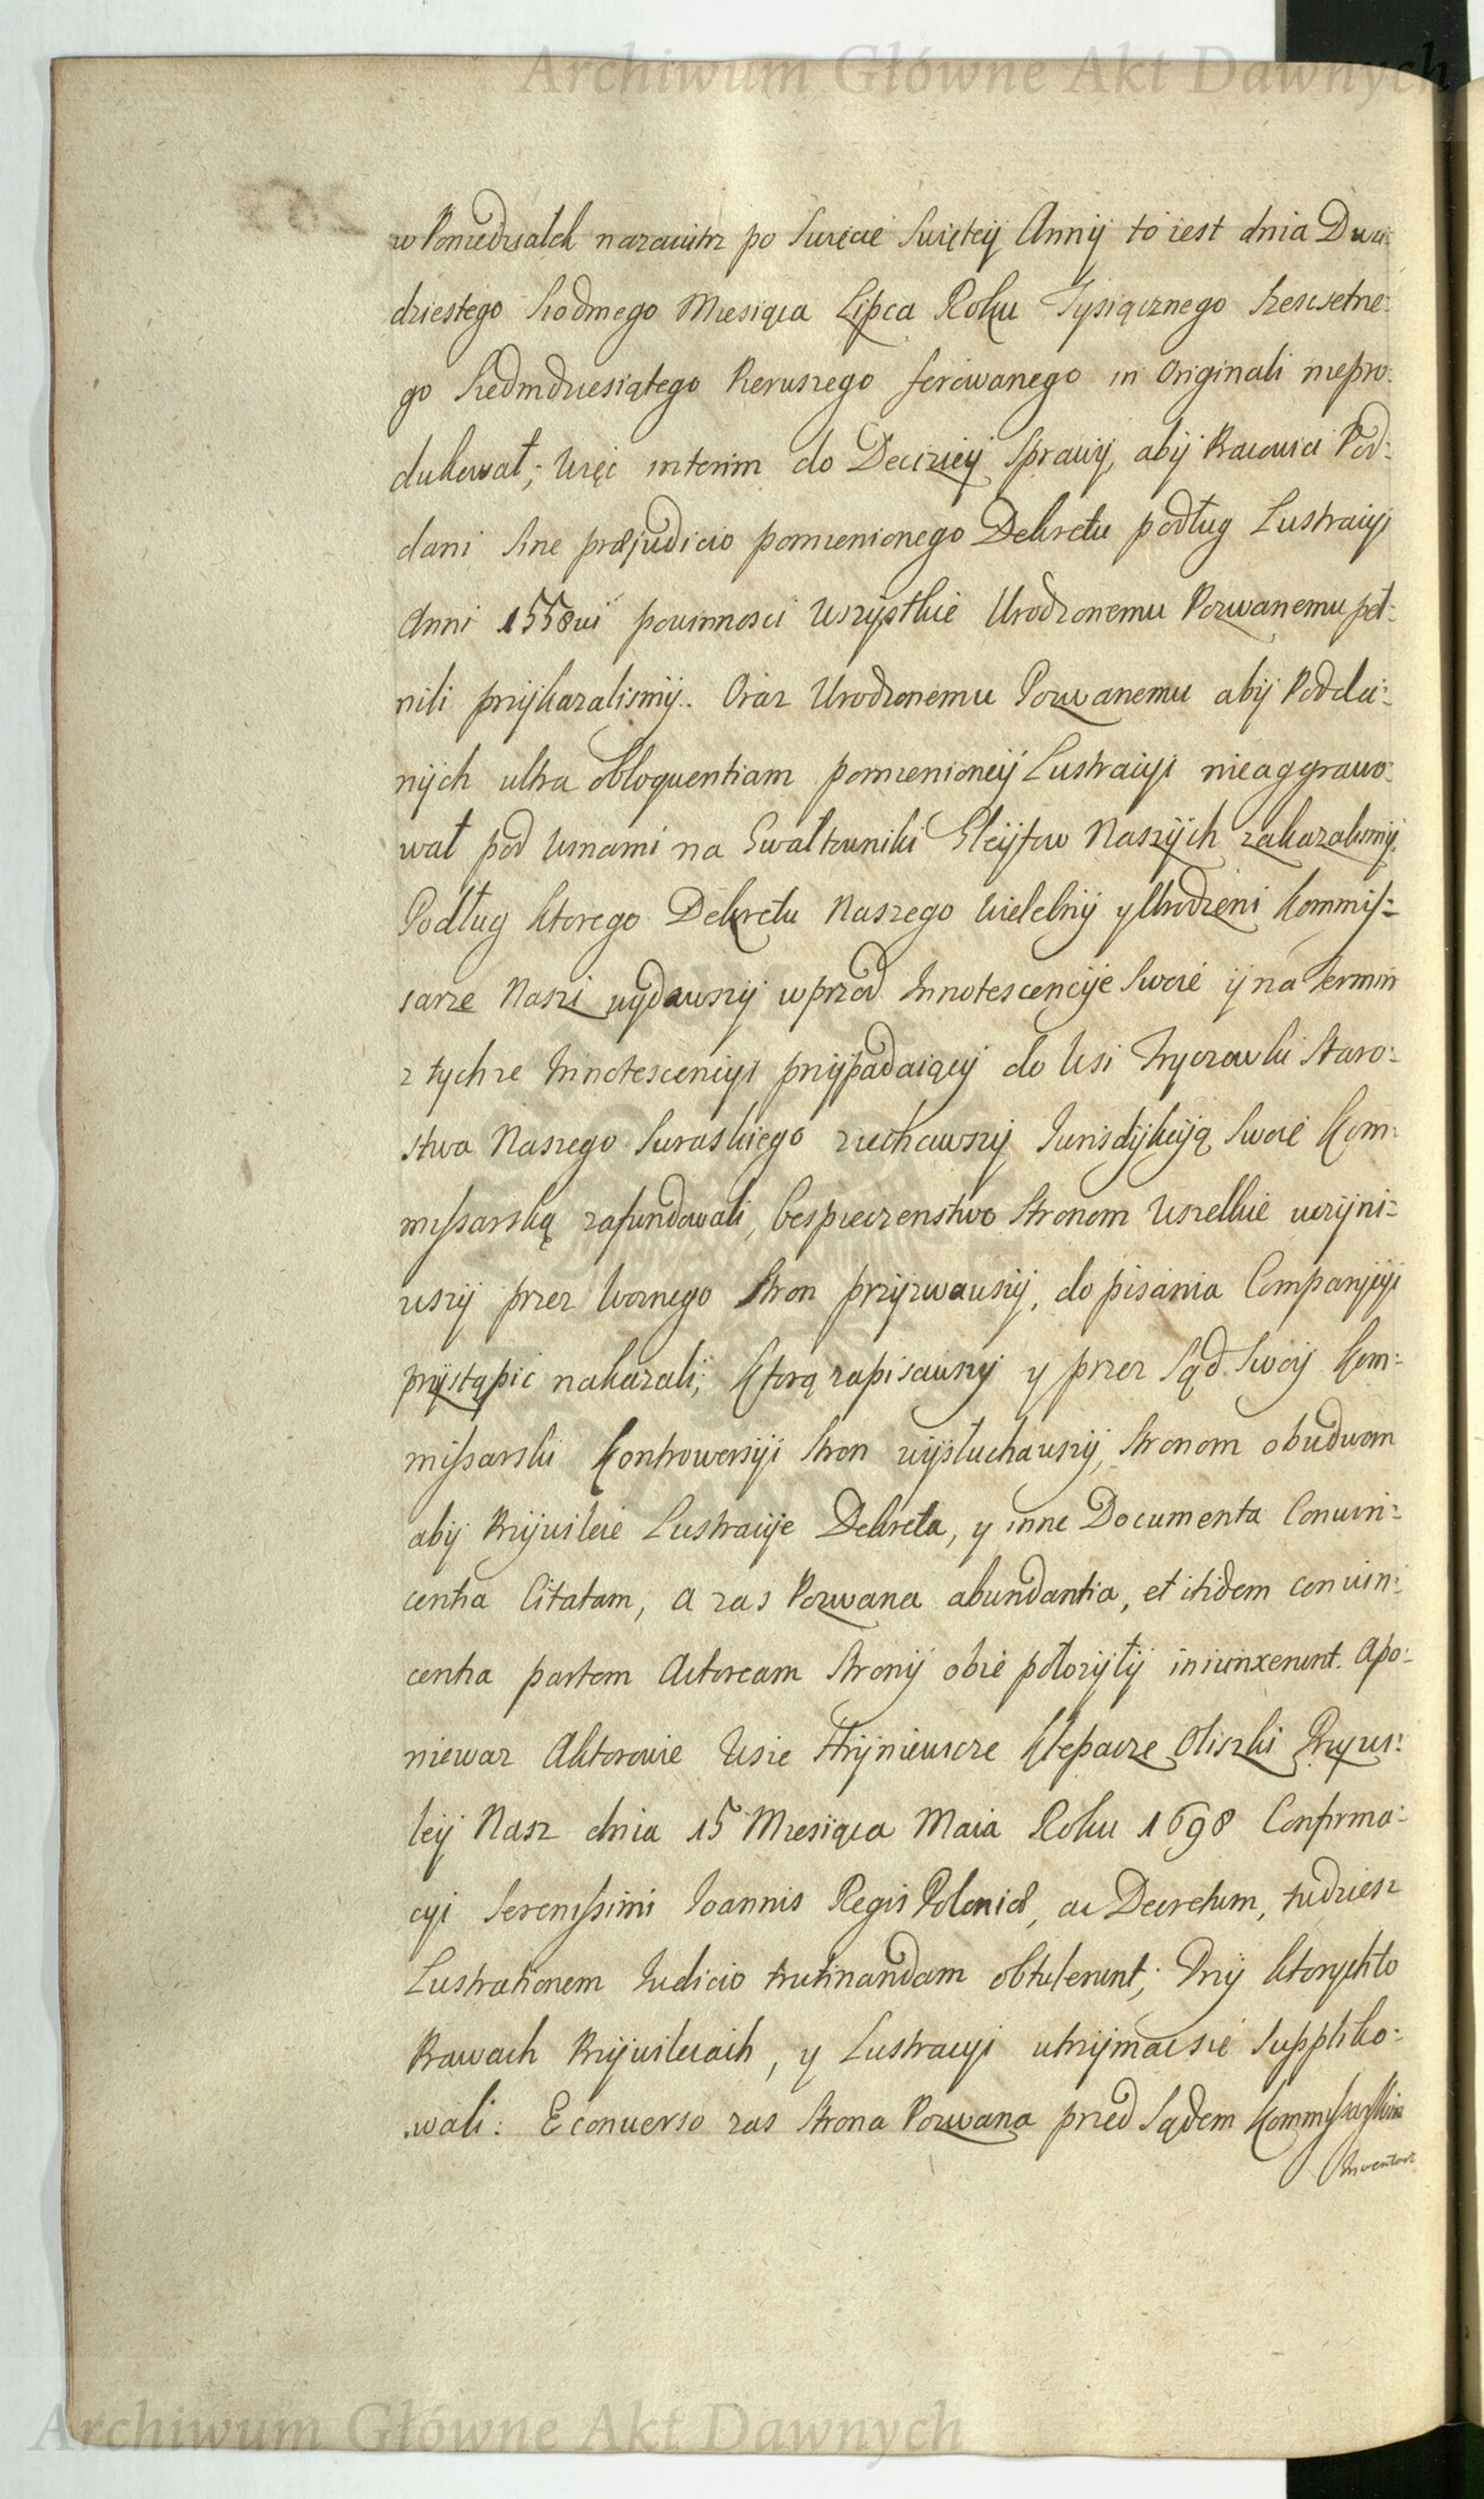 Archiwum Główne Akt Dawnych
w Poniedziałek nazaiutrz po Swięcie Swiętey Anny to iest dnia Dwu:
dziestego Siodmego Miesiąca Lipca Roku Tysiącznego Szescsetne:
go Siedmdziesiątego Pierwszego ferowanego in Originali niepro:
dukował; Więc interim do Decizyey Sprawy, aby Pracowici Pod:
dani Sine præjudicio pomienionego Dekretu podług Lustracyi
Anni 1558vi powinnosci Wszystkie Urodzonemu Pozwanemu peł:
nili przykazalismy. Oraz Urodzonemu Pozwanemu aby Podda:
nych ultra obloquentiam pomienioney Lustracyi nieaggrawo:
wał pod Winami na Gwałtowniki Gleytow Naszych zakazalismy.
Podług ktorego Dekretu Naszego Wielebny y Urodzeni Kommis:
sarze Nasi wydawszy wprzod Innotescencye Swoie y na Termin
z tychze Innotescencyi przypadaiący do Wsi Tryczowki Staro:
stwa Naszego Suraskiego ziechawszy Jurisdykcyą Swoię Kom:
missarską zafundowali, bespieczenstwo Stronom Wszelkie uczyni:
wszy przez Woznego Stron przyzwawszy, do pisania Companycyi
przystąpic nakazali; Ktorą zapisawszy y przez Sąd Swoy Kom:
missarski Kontrowersyi Stron wysłuchawszy, Stronom obudwom
aby Przywileie Lustracye Dekreta, y inne Documenta Convin:
centia Citatam, a zas Pozwana abundantia, et itidem convin:
centia partem Actoream Strony obie położyły iniunxerunt. Apo:
niewaz Aktorowie Wsie Hryniewicze Klepacze Oliszki Przywi:
ley Nasz dnia 15 Miesiąca Maia Roku 1698 Confirma:
cyi Serenissimi Joannis Regis Poloniæ, ac Decretum, tudziesz
Lustrationem Iudicio trutinandam obtulerunt; Przy ktorychto
Prawach Przywileiach, y Lustracyi utrzymac się Suppliko:
wali: E converso zas Strona Pozwana przed Sądem Kommissarskim
Inwentarz
Archiwum Główne Akt Dawnych